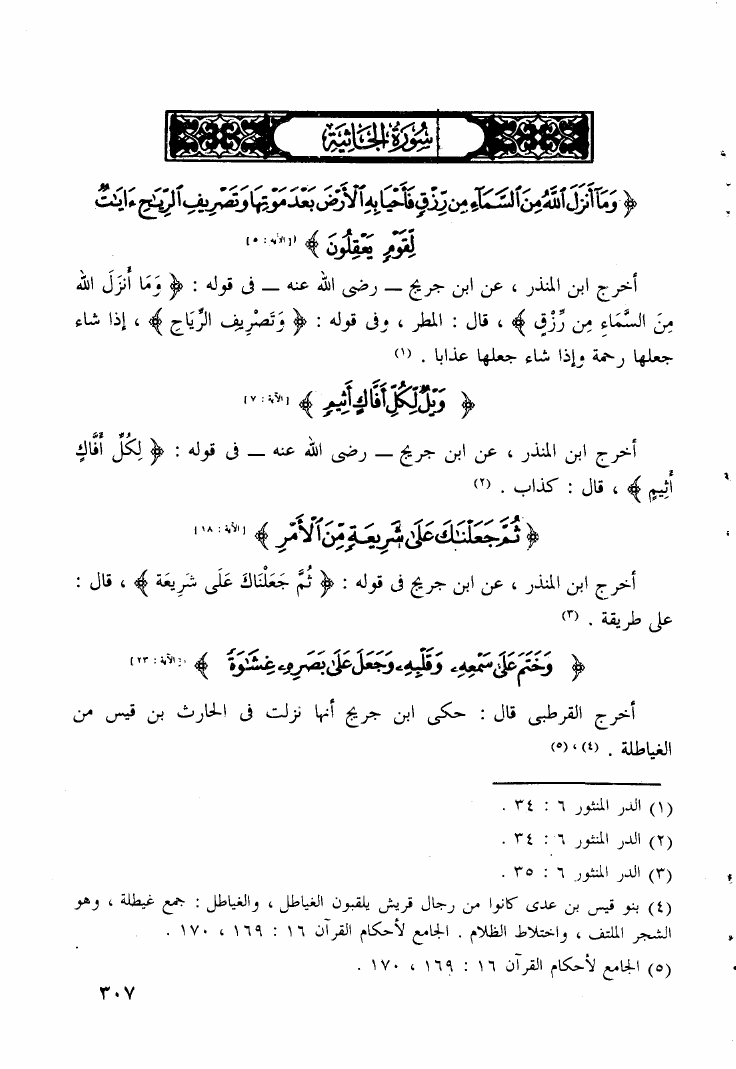 سُورَةُ الجَاثِيَة
﴿ وَمَآ أَنزَلَ ٱللَّهُ مِنَ ٱلسَّمَآءِ مِن رِّزْقٍ فَأَحْيَا بِهِ ٱلْأَرْضَ بَعْدَ مَوْتِهَا وَتَصْرِيفِ ٱلرِّيَٰحِ ءَايَٰتٌ
لِّقَوْمٍ يَعْقِلُونَ ﴾ [الآية : ٥]
أخرج ابن المنذر ، عن ابن جريج ــ رضى الله عنه ــ فى قوله : ﴿ وَمَا أَنزَلَ الله
مِنَ السَّمَاءِ مِن رِّزْقٍ ﴾ ، قال : المطر ، وفى قوله : ﴿ وَتَصْرِيف الرِّيَاحِ ﴾ ، إذا شاء
جعلها رحمة وإذا شاء جعلها عذابا . (١)
﴿ وَيْلٌ لِّكُلِّ أَفَّاكٍ أَثِيمٍ ﴾ [الآية : ٧]
أخرج ابن المنذر ، عن ابن جريج ــ رضى الله عنه ــ فى قوله : ﴿ لِكُلِّ أَفَّاكٍ
أَثِيمٍ ﴾ ، قال : كذاب . (٢)
﴿ ثُمَّ جَعَلْنَٰكَ عَلَىٰ شَرِيعَةٍ مِّنَ ٱلْأَمْرِ ﴾ [الآية : ١٨]
أخرج ابن المنذر ، عن ابن جريج فى قوله : ﴿ ثُمَّ جَعَلْنَاكَ عَلَى شَرِيعَة ﴾ ، قال :
على طريقة . (٣)
﴿ وَخَتَمَ عَلَىٰ سَمْعِهِۦ وَقَلْبِهِۦ وَجَعَلَ عَلَىٰ بَصَرِهِۦ غِشَٰوَةً ﴾ [الآية : ٢٣]
أخرج القرطبى قال : حكى ابن جريج أنها نزلت فى الحارث بن قيس من
الغياطلة . (٤)،(٥)
(١) الدر المنثور ٦ : ٣٤ .
(٢) الدر المنثور ٦ : ٣٤ .
(٣) الدر المنثور ٦ : ٣٥ .
(٤) بنو قيس بن عدى كانوا من رجال قريش يلقبون الغياطل ، والغياطل : جمع غيطلة ، وهو
الشجر الملتف ، واختلاط الظلام . الجامع لأحكام القرآن ١٦ : ١٦٩ ، ١٧٠ .
(٥) الجامع لأحكام القرآن ١٦ : ١٦٩ ، ١٧٠ .
٣٠٧